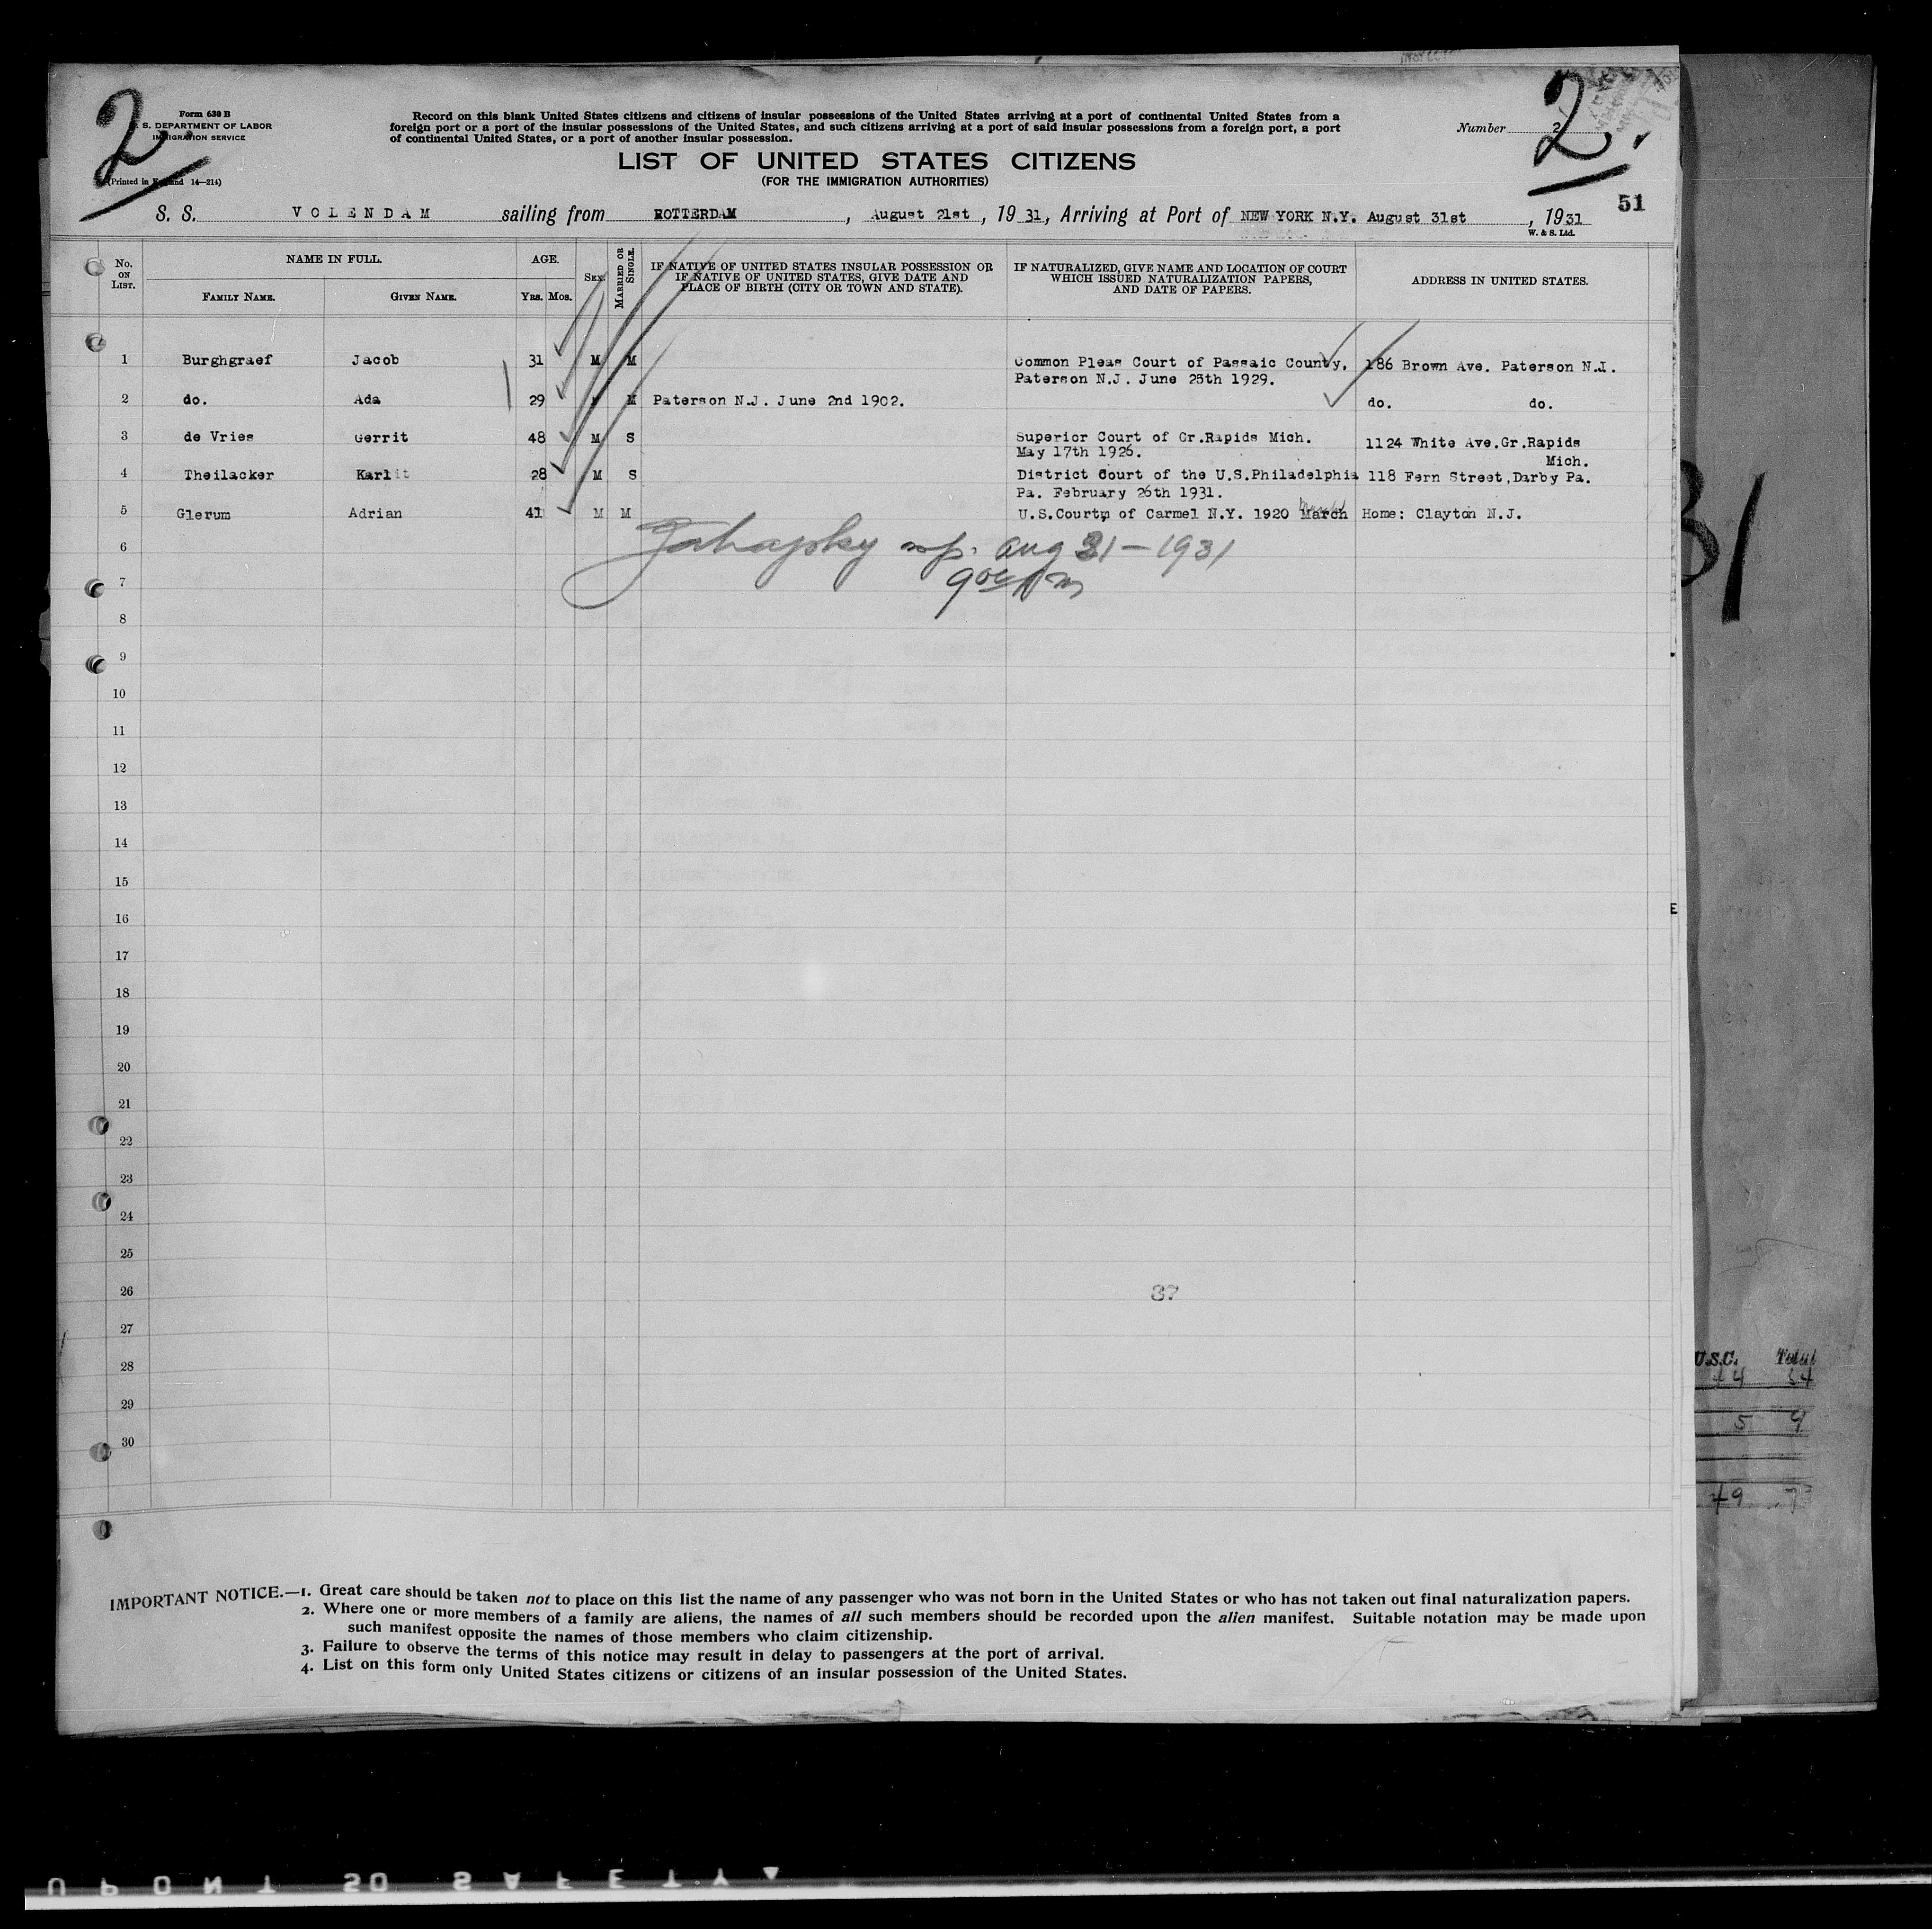 2.
Form 630 B
S. DEPARTMENT OF LABOR
IMMIGRATION SERVICE
(Printed in England 14—214)
Record on this blank United States citizens and citizens of insular possessions of the United States arriving at a port of continental United States from a
foreign port or a port of the insular possessions of the United States, and such citizens arriving at a port of said insular possessions from a foreign port, a port
of continental United States, or a port of another insular possession.
Number 2
2.
LIST OF UNITED STATES CITIZENS
(FOR THE IMMIGRATION AUTHORITIES)
51
S. S. VOLENDAM sailing from ROTTERDAM, August 21st, 19 31, Arriving at Port of NEW YORK N.Y. August 31st, 1931
W. & S. Ltd.
No. ON LIST. NAME IN FULL. FAMILY NAME. GIVEN NAME. AGE. YRS. MOS. SEX. MARRIED OR SINGLE. IF NATIVE OF UNITED STATES INSULAR POSSESSION OR IF NATIVE OF UNITED STATES, GIVE DATE AND PLACE OF BIRTH (CITY OR TOWN AND STATE). IF NATURALIZED, GIVE NAME AND LOCATION OF COURT WHICH ISSUED NATURALIZATION PAPERS, AND DATE OF PAPERS. ADDRESS IN UNITED STATES.
1 Burghgraef Jacob 31 M M Common Pleas Court of Passaic County, 186 Brown Ave. Paterson N.J.
Paterson N.J. June 25th 1929.
2 do. Ada 29 M Paterson N.J. June 2nd 1902. do. do.
3 de Vries Gerrit 48 M S Superior Court of Gr.Rapids Mich. 1124 White Ave.Gr.Rapids
May 17th 1926. Mich.
4 Theilacker Karl 28 M S District Court of the U.S.Philadelphia 118 Fern Street,Darby Pa.
Pa. February 26th 1931.
5 Glerum Adrian 41 M M U.S.Court, of Carmel N.Y. 1920 March Home: Clayton N.J.
6 Aug 31-1931
7
8
9
10
11
12
13
14
15
16
17
18
19
20
21
22
23
24
25
26 37
27
28
29
30
U.S.C. Total
5 9
49
IMPORTANT NOTICE.—1. Great care should be taken not to place on this list the name of any passenger who was not born in the United States or who has not taken out final naturalization papers.
2. Where one or more members of a family are aliens, the names of all such members should be recorded upon the alien manifest. Suitable notation may be made upon
such manifest opposite the names of those members who claim citizenship.
3. Failure to observe the terms of this notice may result in delay to passengers at the port of arrival.
4. List on this form only United States citizens or citizens of an insular possession of the United States.
UPONT 50 SAFETY